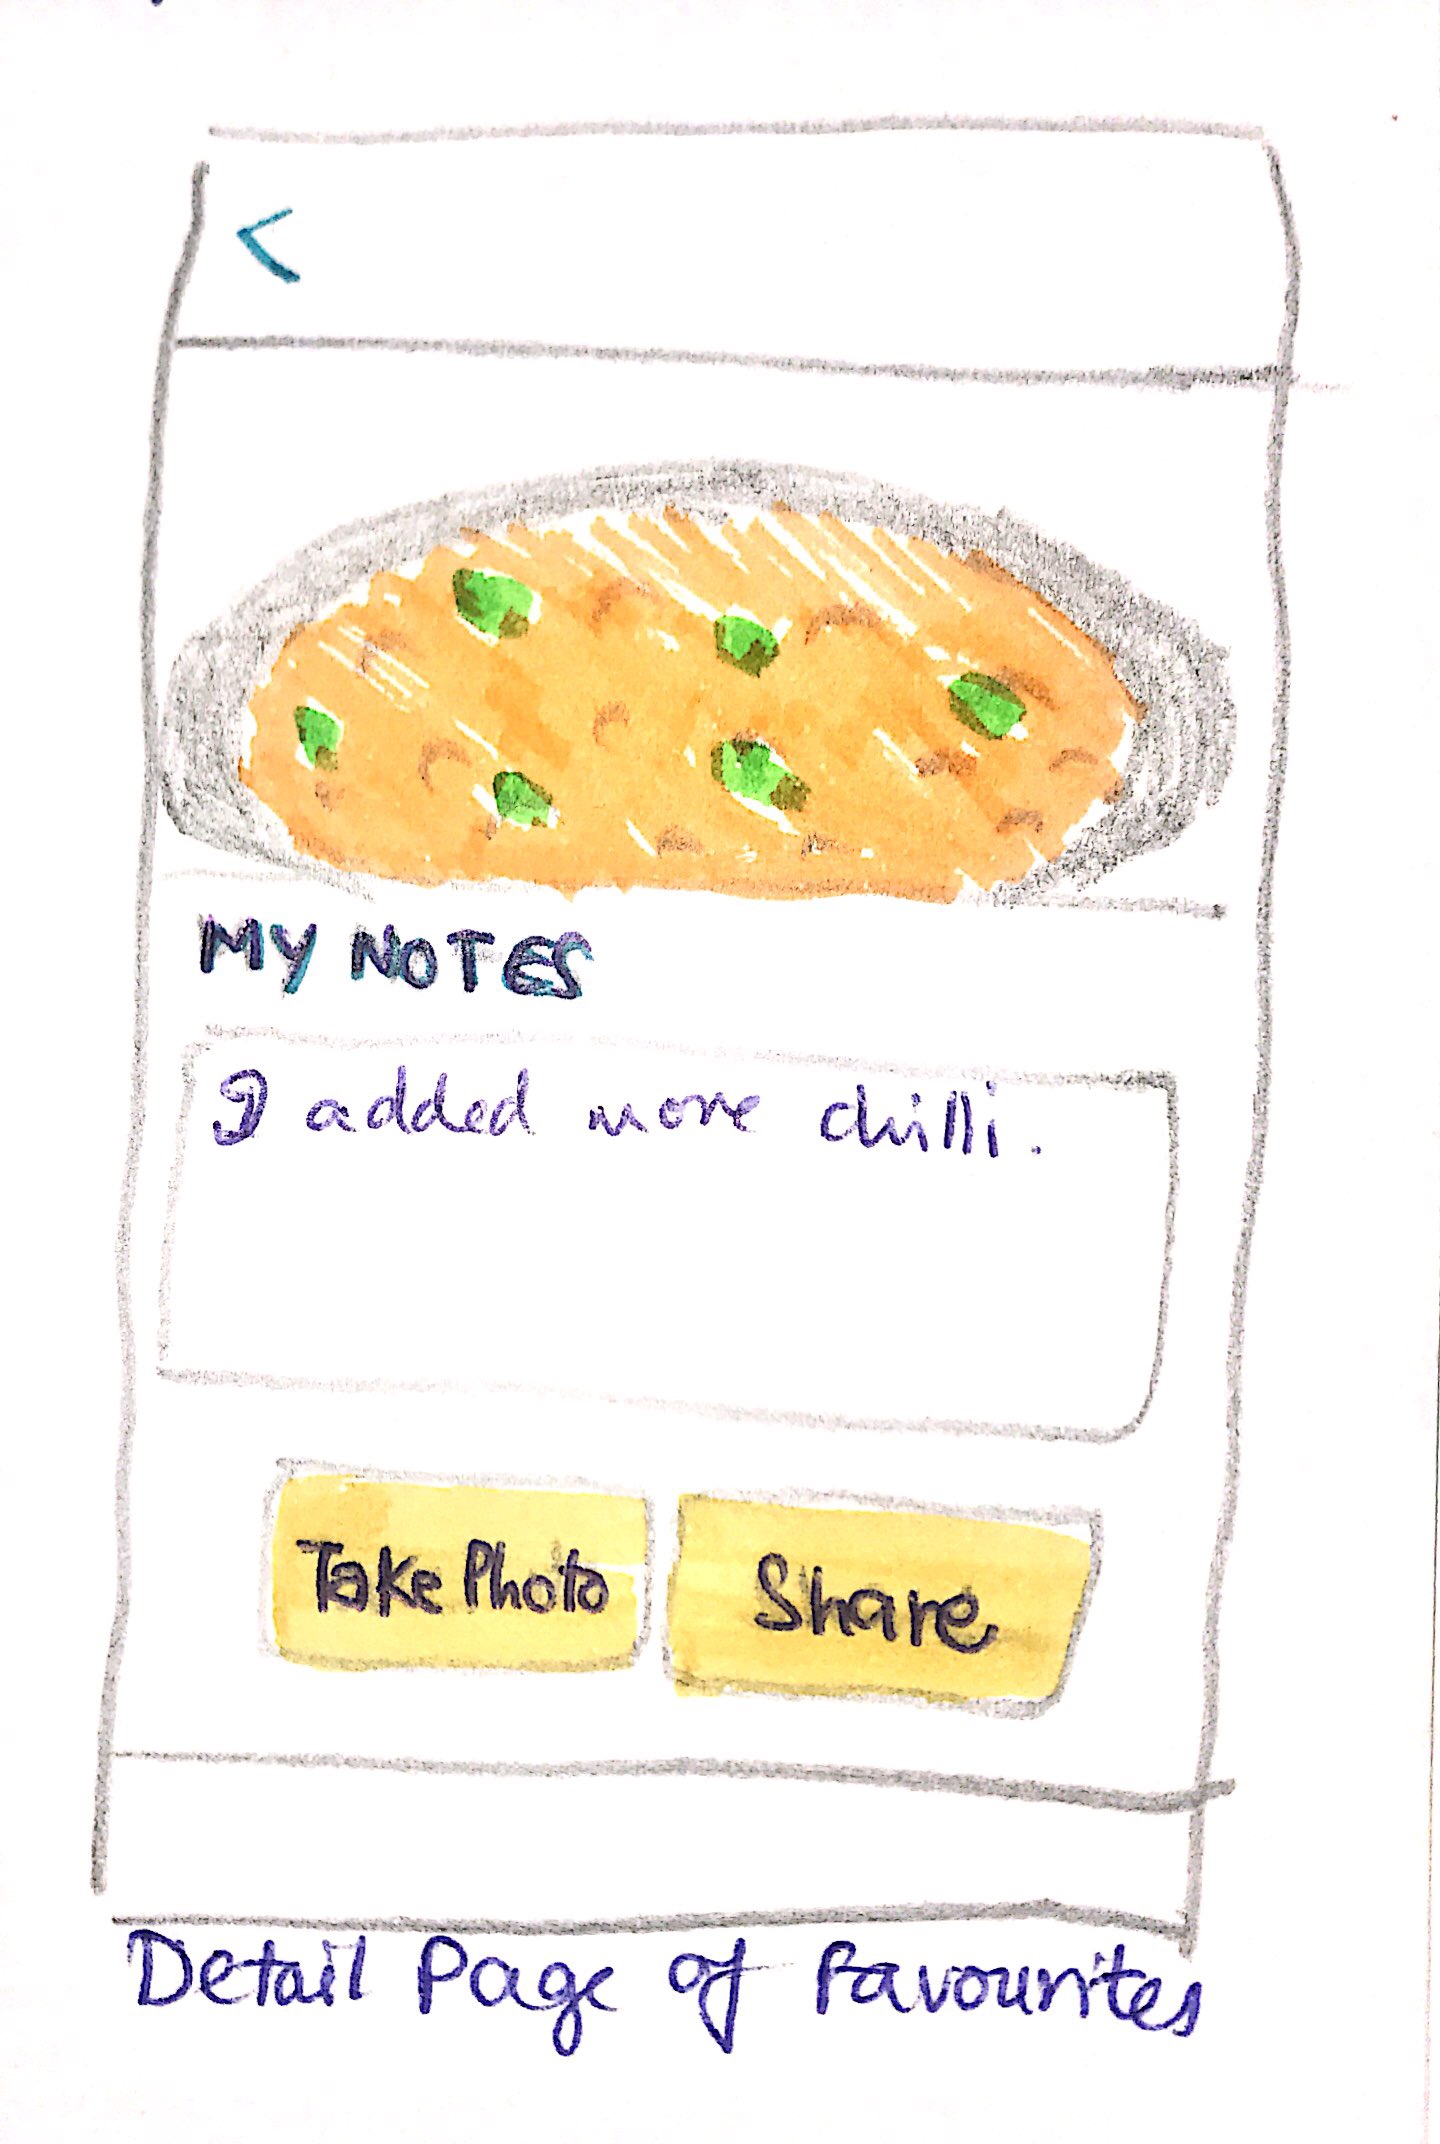 <
MY NOTES
I added more chilli.
Take Photo
Share
Detail Page of Favourites